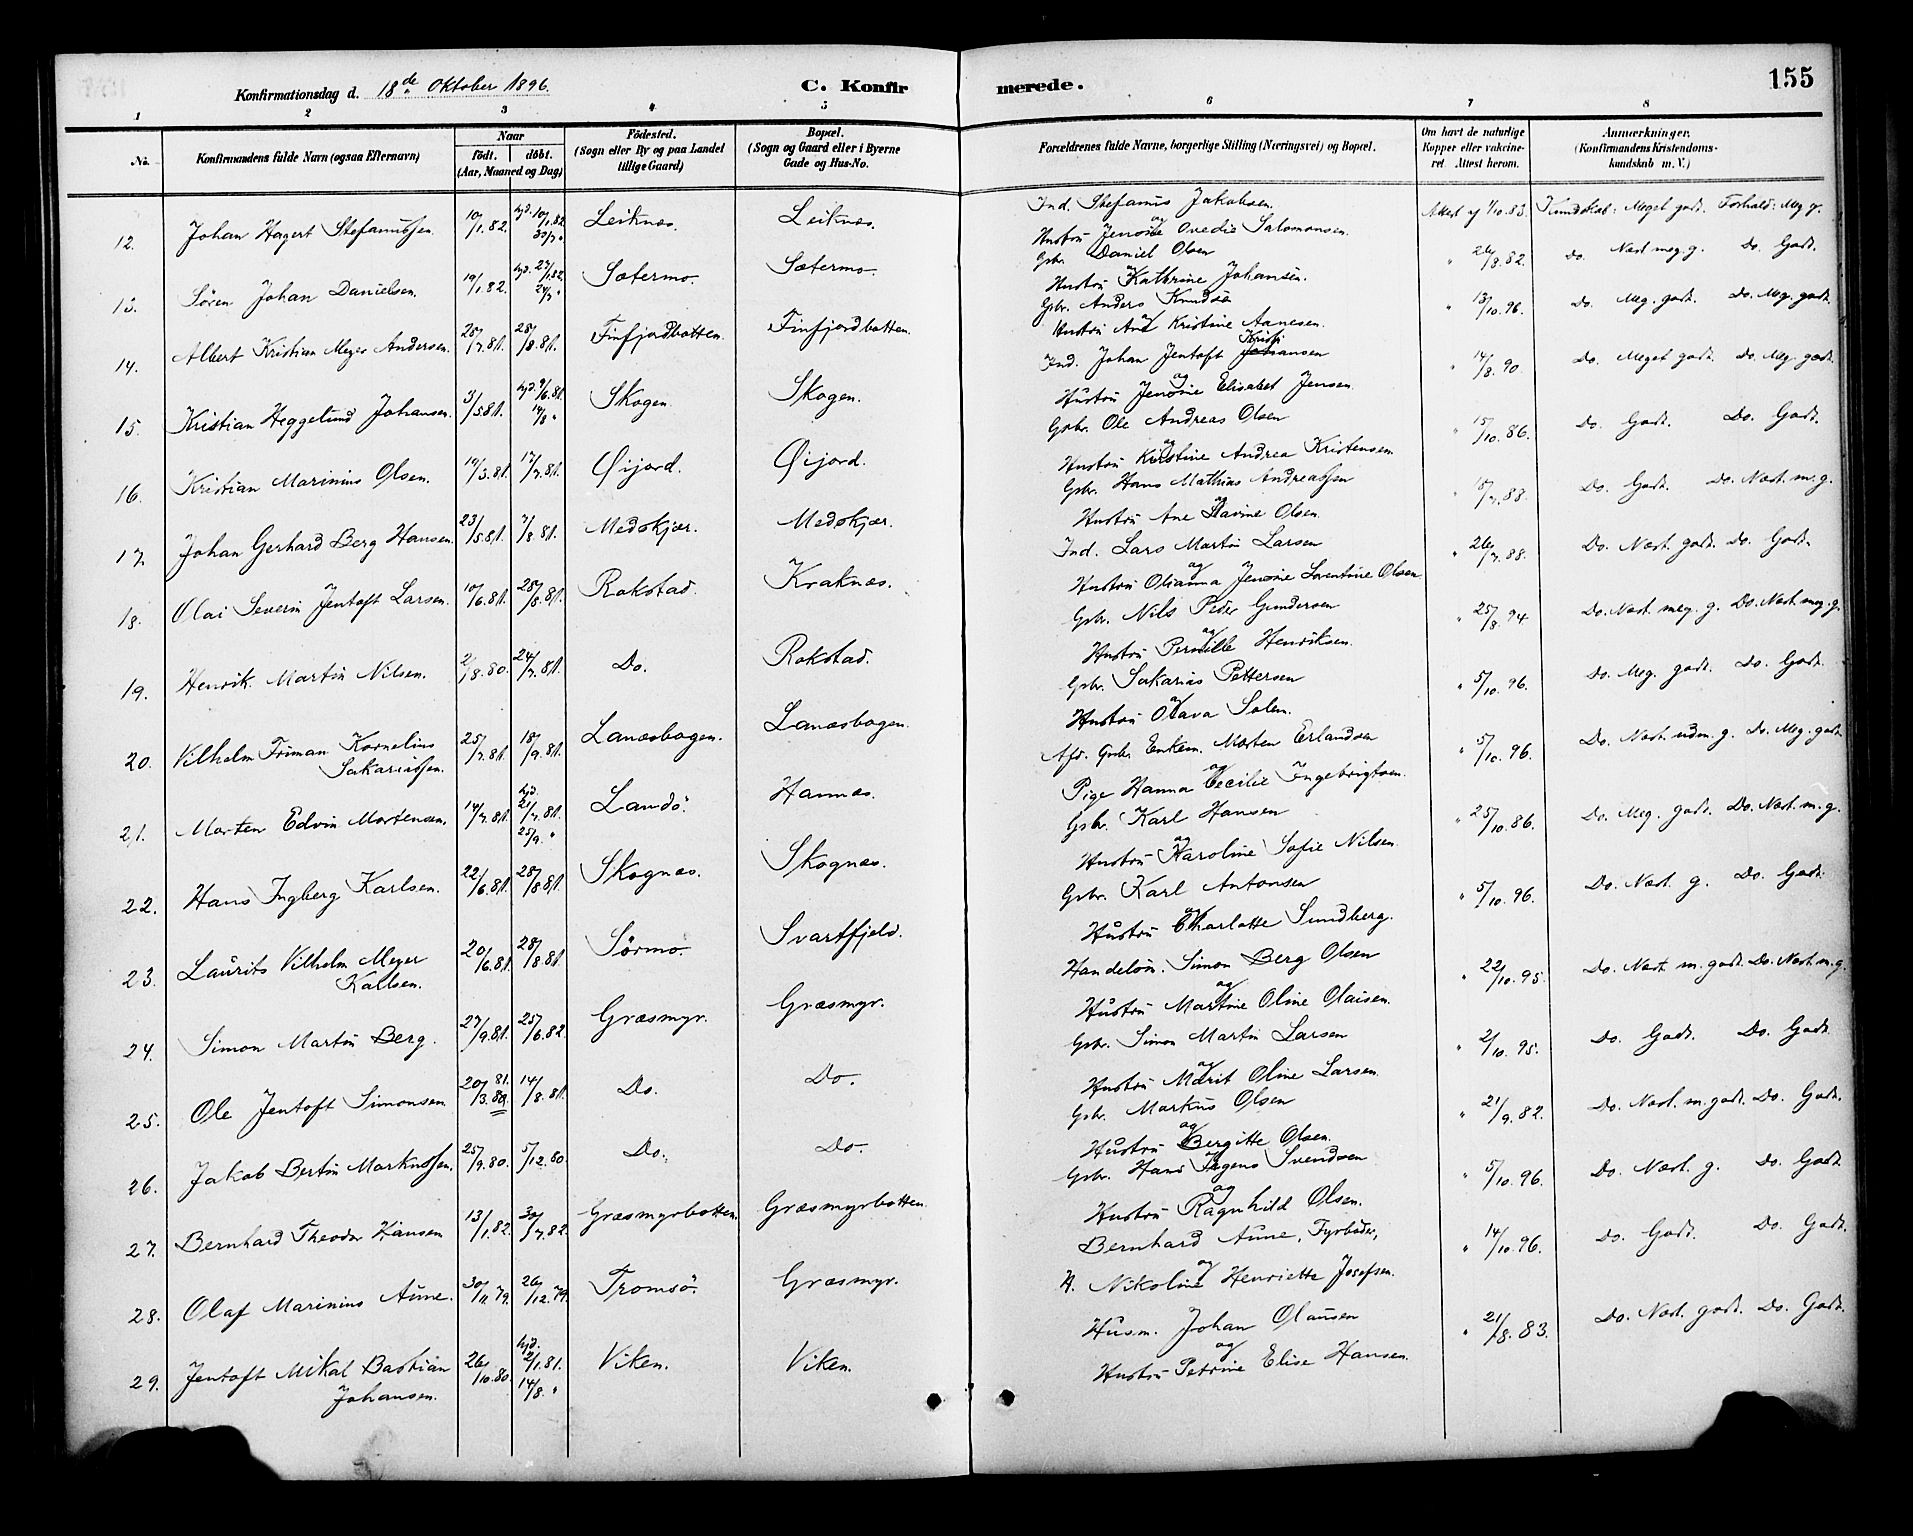 Konfirmationsdag d. 18de Oktober 1896.
C. Konfirmerede.
155
1 2 3 4 5 6 7 8
No. Konfirmandens fulde Navn (ogsaa Efternavn) Naar født. døbt. (Aar, Maaned og Dag) Fødested. (Sogn eller By og paa Landet tillige Gaard) Bopæl. (Sogn og Gaard eller i Byerne Gade og Hus-No. Forældrenes fulde Navne, borgerlige Stilling (Næringsvei) og Bopæl. Om havt de naturlige Kopper eller vaccineret Attest herom. Anmærkninger. (Konfirmandens Kristendomskundskab m. V.)
12. Johan Hagert Stefanussen. 10/1.82. hjd. 10/1.82. 30/7 " Leiknæs. Leiknæs. Ind. Stefanus Jakobsen og Hustru Jensine Ovedie Salomonsen. Attest af 1/10.83. Kundskab: Meget godt. Forhold: Meg. g.
13. Sören Johan Danielsen. 19/1.82. hjd. 27/1.82. Sætermo. Sætermo. Gbr. Daniel Olsen og Hustru Kathrine Johansen. " 26/8.82. Do. Næst meg. g. Do. Godt.
14. Albert Kristian Meyer Andersen. 25/7.81. 28/8.81. Finfjordbotten. Finfjordbotten. Gbr. Anders Knudsen og Hustru Ane Kristine Aanesen. " 13/10.96. Do. Meg. godt. Do. Meg. godt.
15. Kristian Heggelund Johansen. 3/5.81. hjd. 9/6.81. 14/8 " Skogen. Skogen. Ind. Johan Jentoft Johansen Kristi og Hustru Jensine Elisabet Jensen. " 14/8.90. Do. Meget godt. Do. Meg. godt.
16. Kristian Marinius Olsen. 19/3.81. 17/7.81. Øijord. Øijord. Gbr. Ole Andreas Olsen og Hustru Kirstine Andrea Kristensen " 15/10.86. Do. Godt. Do. Godt.
17. Johan Gerhard Berg Hansen. 23/5.81. 7/8.81. Medskjær. Medskjær. Gbr. Hans Mathias Andreassen og Hustru Ane Davine Olsen. " 18/7.88. Do. Godt. Do. Næst m. g.
18. Olai Severin Jentoft Larsen. 10/6.81. 28/8.81. Rokstad. Kraknæs. Ind. Lars Martin Larsen og Hustru Olianna Jensine Lorentine Olsen " 26/7.88. Do. Næst. godt. Do. Godt.
19. Henrik Martin Nilsen. 2/8.80. 24/7.81. Do. Rokstad. Gbr. Nils Peder Gundersen og Hustru Pernille Henriksen. " 25/8.94. Do. Næst meg. g. Do. Næst meg. g.
20. Vilhelm Friman Kornelius Sakariassen. 25/7.81. 18/9.81. Lanæsbogen. Lanæsbogen. Gbr. Sakarias Pettersen og Hustru Olava Salem. " 5/10.96. Do. Meg. godt. Do. Godt.
21. Morten Edvin Mortensen. 14/7.81. hjd. 21/7.81. 25/9. " Landö. Hannæs. Afd. Gbr. Enkem. Morten Erlandsen og Pige Hanna Cecilie Ingebrigtsen. " 5/10.96. Do. Næst. udm. g. Do. Meg. godt.
22. Hans Ingberg Karlsen. 22/6.81. 28/8.81. Skognæs. Skognæs. Gbr. Karl Hansen og Hustru Karoline Sofie Nilsen. " 25/10.86. Do. Meg. godt. Do. Næst. m. g.
23. Laurits Vilhelm Meyer Kallsen. 20/6.81. 28/8.81. Sørmo. Svartfjeld. Gbr. Karl Antonsen og Hustru Charlotte Sundberg. " 5/10.96. Do. Næst. g. Do. Godt.
24. Simon Martin Berg. 27/9.81. 25/6.82. Græsmyr. Græsmyr. Handelsm. Simon Berg Olsen og Hustru Martine Oline Olaisen. " 22/10.95. Do. Næst. m. godt. Do. Næst. m. g.
25. Ole Jentoft Simonsen 20/3.80. 81. 14/8.81. Do. Do. Gbr. Simon Martin Larsen og Hustru Marit Oline Larsen. " 2/10.95. Do. Godt. Do. Godt.
26. Jakob Bertin Markussen. 25/9.80. 5/12.80. Do. Do. Gbr. Markus Olsen og Hustru Bergitte Olsen. " 21/9.82. Do. Næst. m. godt. Do. Godt.
27. Bernhard Theodor Hansen 13/1.82. 30/7.82. Græsmyrbotten. Græsmyrbotten. Gbr. Hans Jørgens Svendsen og Hustru Ragnhild Olsen. " 5/10.96. Do. Næst. g. Do. Godt.
28. Olaf Marinius Aune. 30/11.79. 26/12.79. Tromsö. Græsmyr. Bernhard Aune, Fyrböder, og H. Nikoline Henriette Josefsen. " 14/10.96. Do. Godt. Do. Godt.
29. Jentoft Mikal Bastian Johansen. 26/10.80. hjd. 2/1.81. 14/8. " Viken. Viken. Husm. Johan Olausen og Hustru Petrine Elise Hansen. " 21/8.83. Do. Næst. godt. Do. Godt.